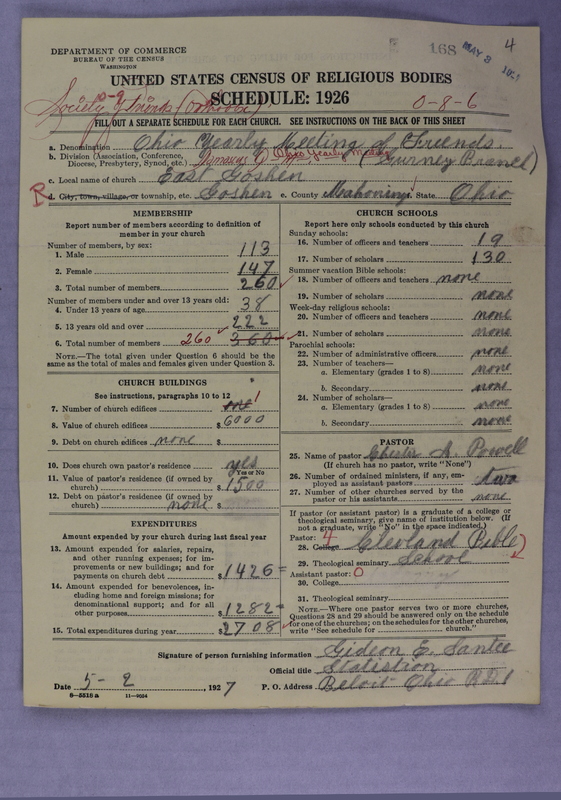 DEPARTMENT OF COMMERCE
BUREAU OF THE CENSUS
WASHINGTON
168 MAY 3
4
UNITED STATES CENSUS OF RELIGIOUS BODIES
SCHEDULE: 1926
0-9
Society of Friends (Orthodox)
0-8-6
FILL OUT A SEPARATE SCHEDULE FOR EACH CHURCH. SEE INSTRUCTIONS ON THE BACK OF THIS SHEET
a. Denomination Ohio Yearly Meeting of Friends.
b. Division (Association, Conference, Diocese, Presbytery, Synod, etc.) Ohio Yearly Meeting (Gurney Branch)
c. Local name of church East Goshen
R d. City, town, village, or township, etc. Goshen e. County Mahoning f. State Ohio
MEMBERSHIP
Report number of members according to definition of
member in your church
Number of members, by sex:
1. Male 113
2. Female 147
3. Total number of members 260
Number of members under and over 13 years old:
4. Under 13 years of age 38
5. 13 years old and over 222
6. Total number of members 260 360
NOTE.—The total given under Question 6 should be the
same as the total of males and females given under Question 3.
CHURCH BUILDINGS
See instructions, paragraphs 10 to 12
7. Number of church edifices one 1
8. Value of church edifices $ 6000
9. Debt on church edifices none $
10. Does church own pastor's residence yes
Yes or No
11. Value of pastor's residence (if owned by
church) $ 1500
12. Debt on pastor's residence (if owned by
church) none $
EXPENDITURES
Amount expended by your church during last fiscal year
13. Amount expended for salaries, repairs,
and other running expenses; for im-
provements or new buildings; and for
payments on church debt $ 1426=
14. Amount expended for benevolences, in-
cluding home and foreign missions; for
denominational support; and for all
other purposes $ 1282=
15. Total expenditures during year $ 2708
CHURCH SCHOOLS
Report here only schools conducted by this church
Sunday schools:
16. Number of officers and teachers 19
17. Number of scholars 130
Summer vacation Bible schools:
18. Number of officers and teachers none
19. Number of scholars none
Week-day religious schools:
20. Number of officers and teachers none
21. Number of scholars none
Parochial schools:
22. Number of administrative officers none
23. Number of teachers—
a. Elementary (grades 1 to 8) none
b. Secondary none
24. Number of scholars—
a. Elementary (grades 1 to 8) none
b. Secondary none
PASTOR
25. Name of pastor Chester A. Powell
(If church has no pastor, write "None")
26. Number of ordained ministers, if any, em-
ployed as assistant pastors two
27. Number of other churches served by the
pastor or his assistants none
If pastor (or assistant pastor) is a graduate of a college or
theological seminary, give name of institution below. (If
not a graduate, write "No" in the space indicated.)
Pastor: 4
28. College Clevland Bible
29. Theological seminary School
Assistant pastor: 0
30. College
31. Theological seminary
NOTE.—Where one pastor serves two or more churches,
Questions 28 and 29 should be answered only on the schedule
for one of the churches; on the schedules for the other churches,
write "See schedule for church."
Signature of person furnishing information Gideon E. Santee
Official title Statistion
Date 5-2, 1927 P. O. Address Beloit Ohio R.D.1
8—5518 a 11—9054